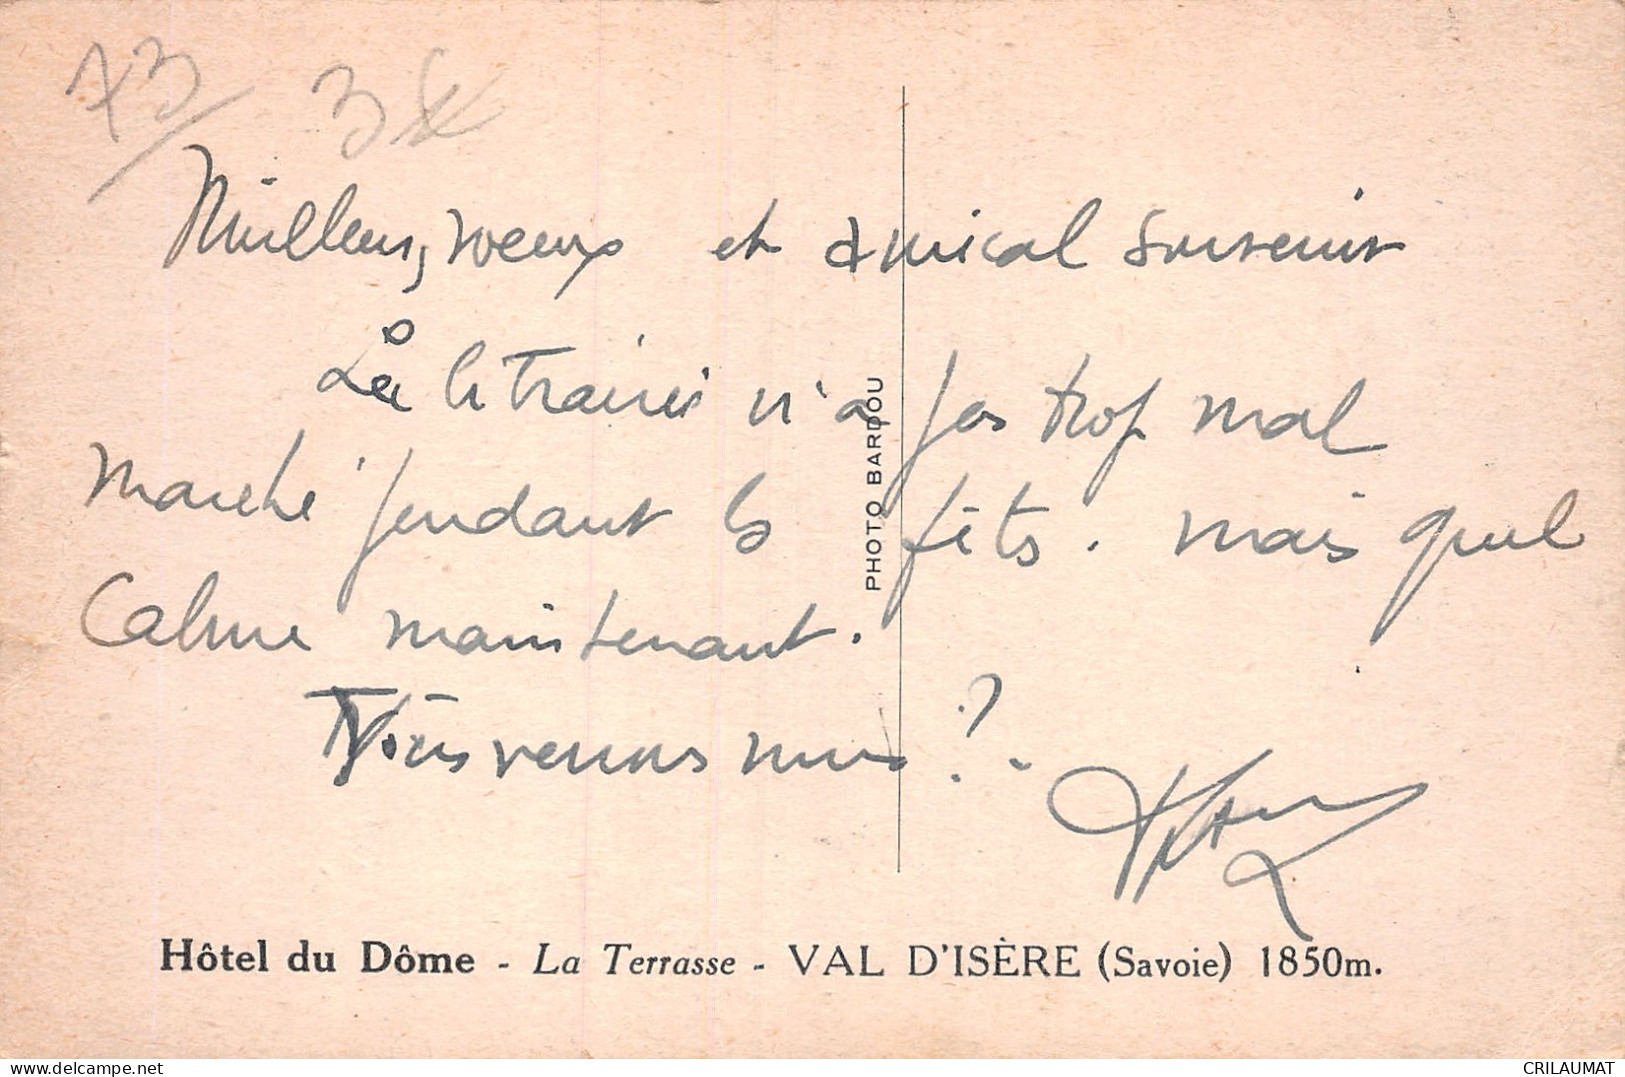 73
3
Meilleurs voeux et amical souvenir
La librairie n'a pas trop mal
marché pendant les fêtes. mais quel
Calme maintenant.
venons nous ?
PHOTO BARDOU
Hôtel du Dôme - La Terrasse - VAL D'ISÈRE (Savoie) 1850m.
CRILAUMAT